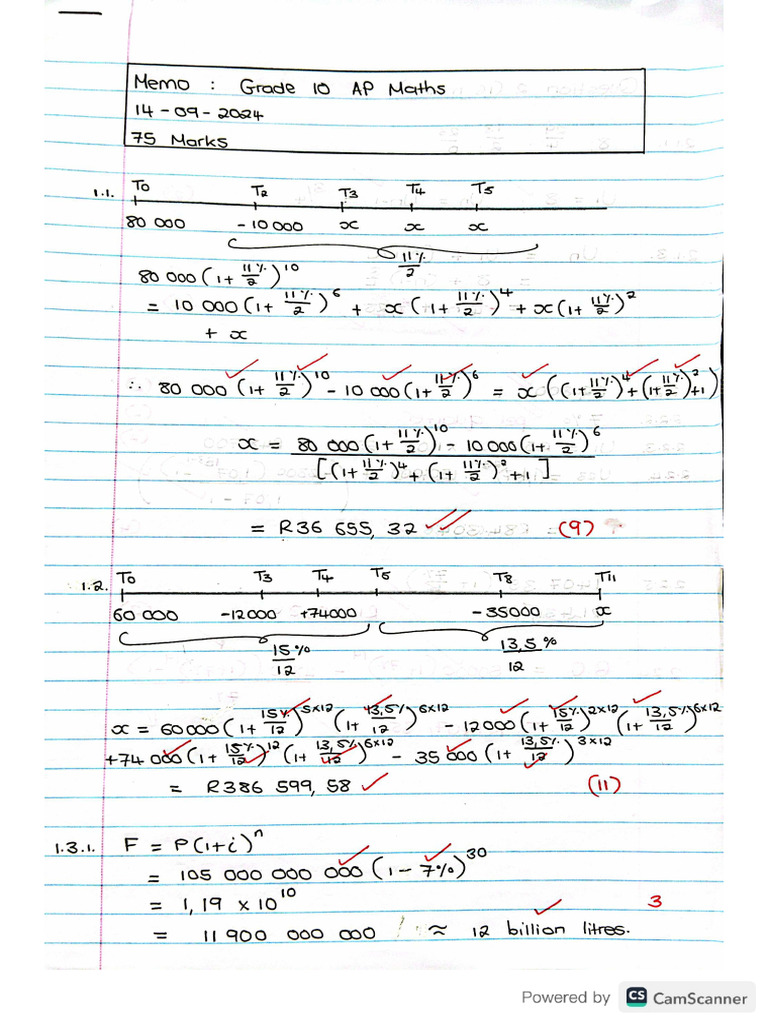 Memo : Grade 10 AP Maths
14-09-2024
75 Marks
1.1. T0 T2 T3 T4 T5
80 000 -10 000 x x x
11%/2
80 000 (1+ 11%/2)^10
= 10 000 (1+ 11%/2)^6 + x (1+ 11%/2)^4 + x (1+ 11%/2)^2
+ x
∴ 80 000 (1+ 11%/2)^10 - 10 000 (1+ 11%/2)^6 = x ((1+ 11%/2)^4 + (1+ 11%/2)^2 +1)
x = 80 000 (1+ 11%/2)^10 - 10 000 (1+ 11%/2)^6
[(1+ 11%/2)^4 + (1+ 11%/2)^2 +1]
= R36 655, 32 (9)
1.2. T0 T3 T4 T5 T8 T11
60 000 -12000 +74000 -35000 x
15%/12 13,5%/12
x = 60000 (1+ 15%/12)^5x12 (1+ 13,5%/12)^6x12 - 12000 (1+ 15%/12)^2x12 (1+ 13,5%/12)^6x12
+74 000 (1+ 15%/12)^12 (1+ 13,5%/12)^6x12 - 35 000 (1+ 13,5%/12)^3x12
= R386 599, 58 (11)
1.3.1. F = P(1+i)^n
= 105 000 000 000 (1- 7%)^30
= 1,19 x 10^10 3
= 11 900 000 000 ≈ 12 billion litres.
Powered by CS CamScanner